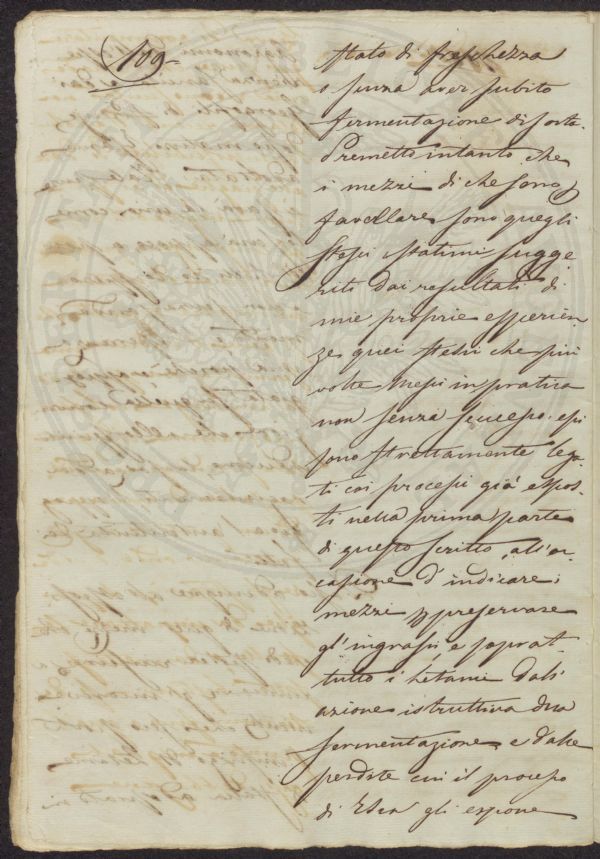 109
stato di freschezza
o senza aver subito
fermentazione di sorta.
Premetto intanto che
i mezzi di che sono p
favellare sono quegli
stessi statimi sugge
riti dai resultati di
mie proprie esperien
ze, quei stessi che più
volte messi in pratica
non senza successo. essi
sono strettamente lega
ti coi processi già espos
ti nella prima parte
di questo scritto, all'oc
casione d'indicare i
mezzi p preservare
gl'ingrassi, e soprat
tutto i letami dall'
azione istruttiva dna
fermentazione, e dalle
perdite cui il processo
di gli espone